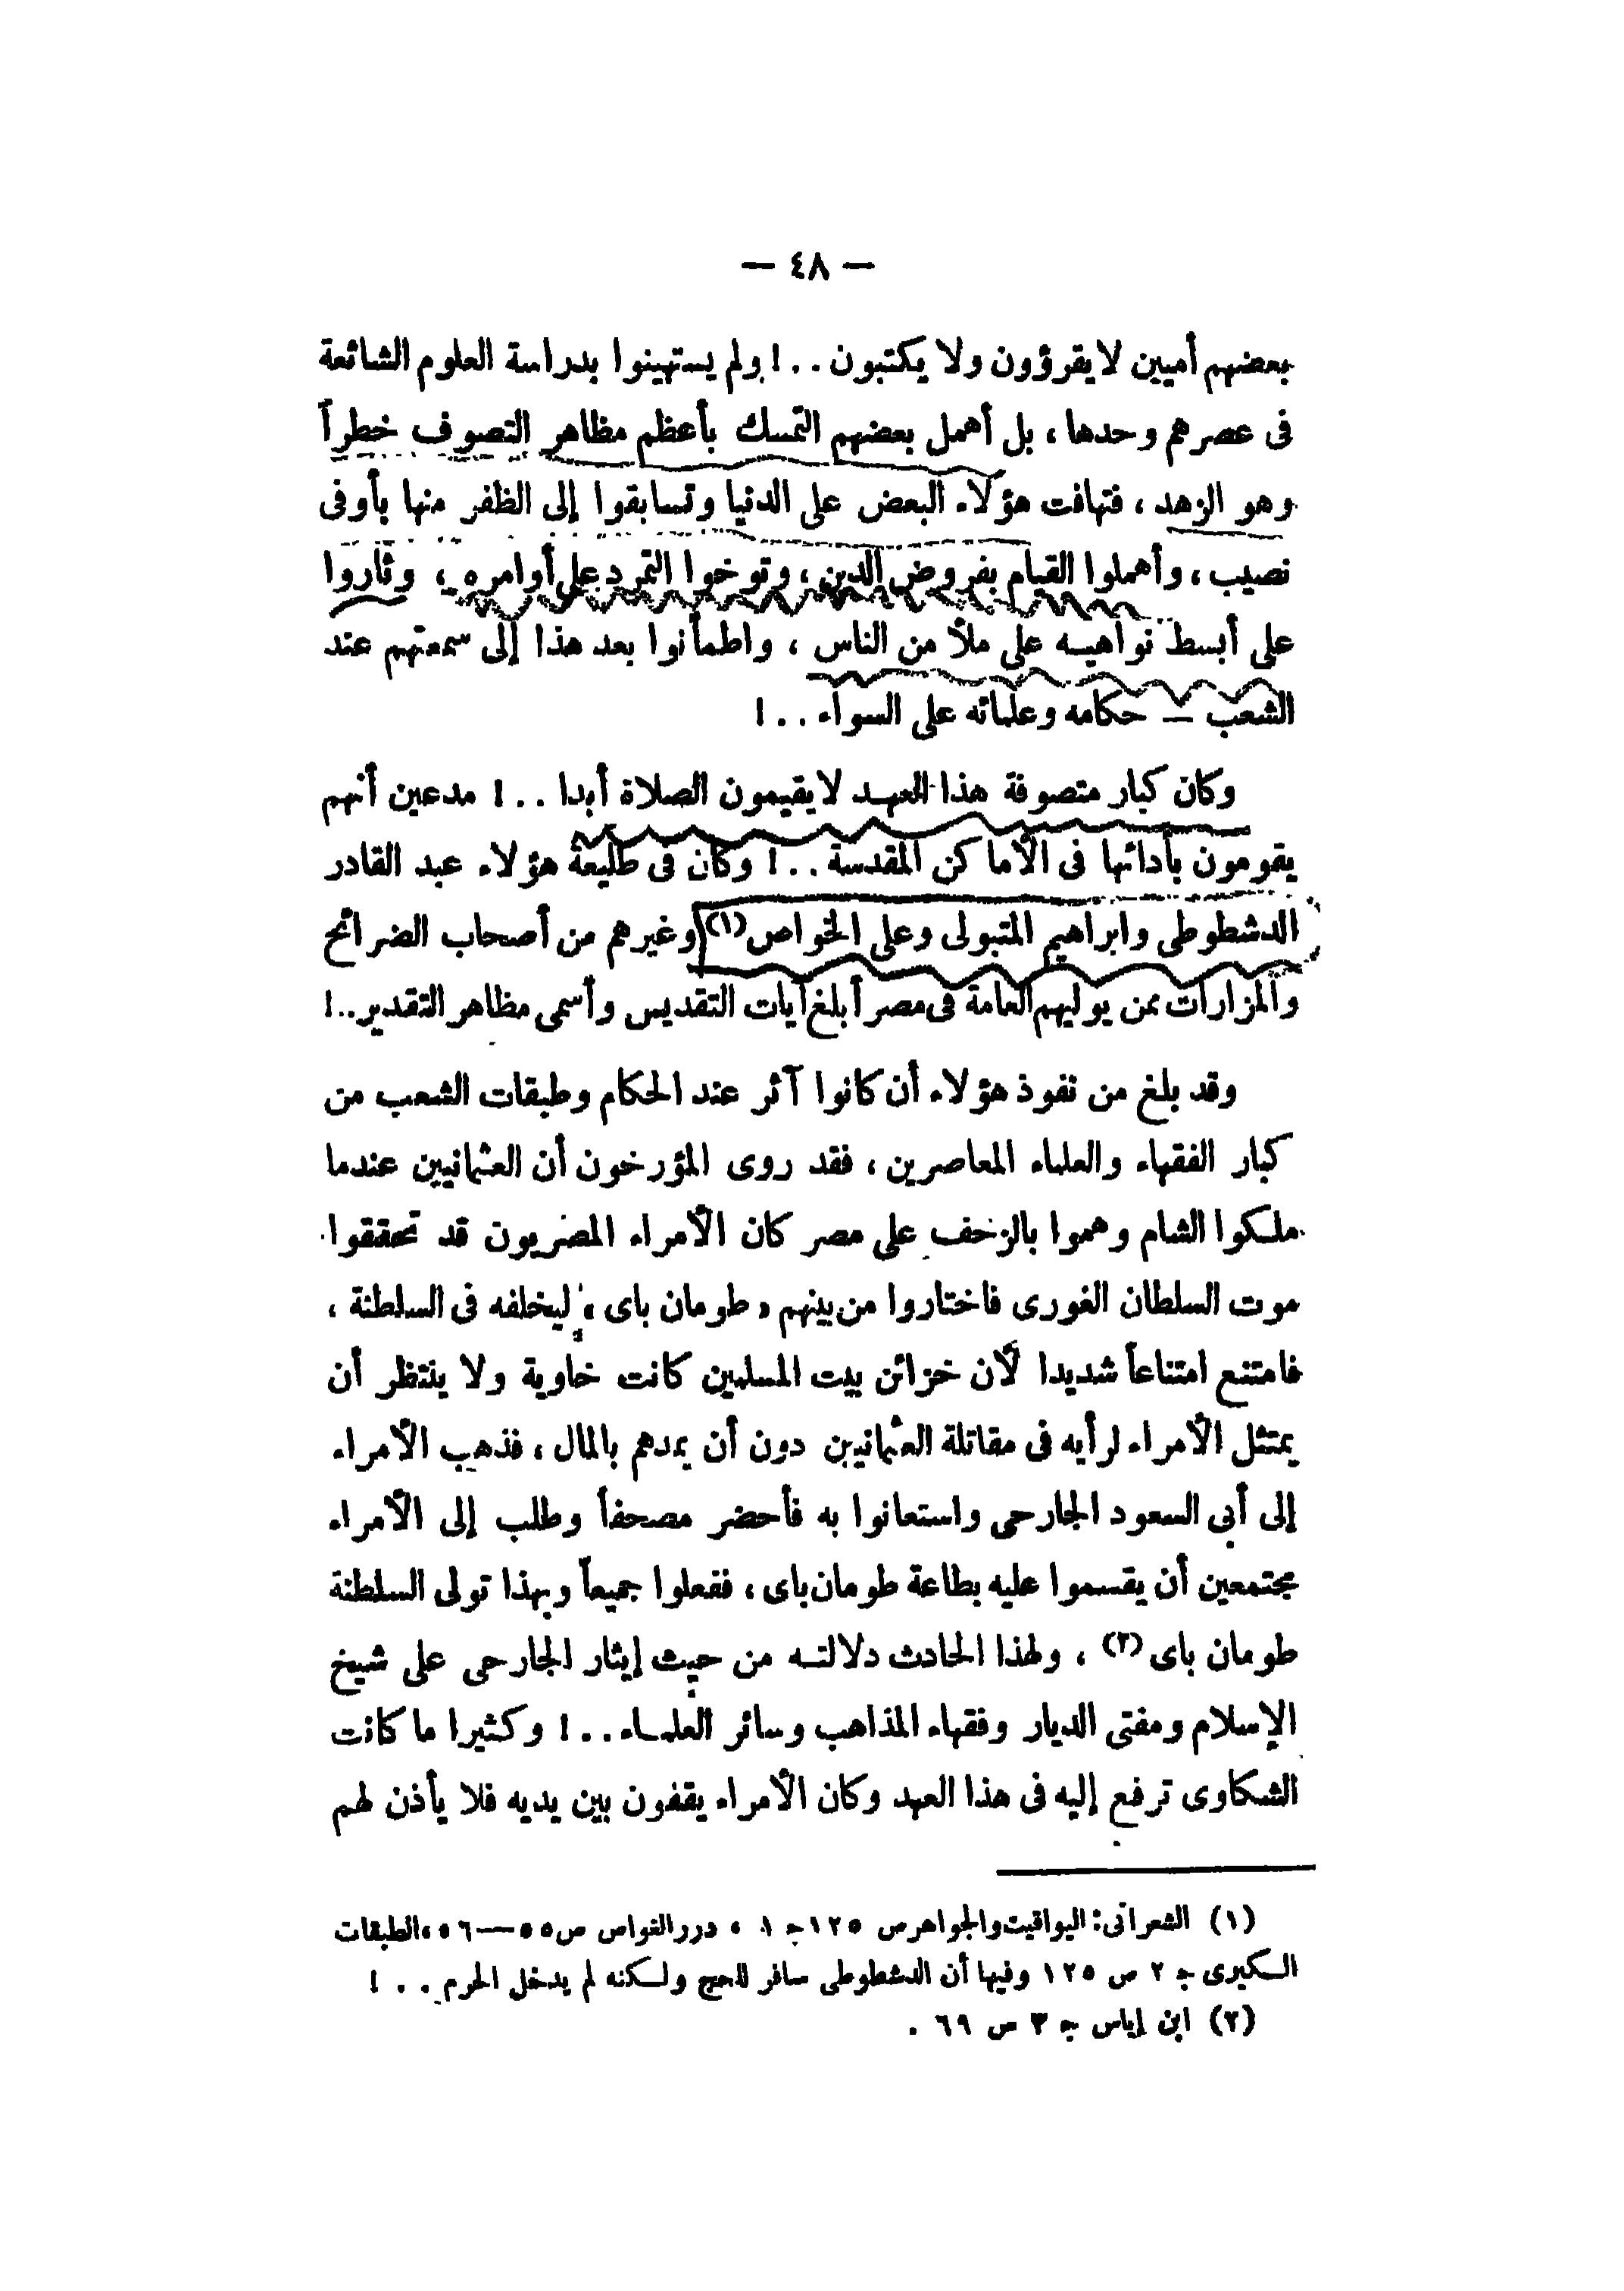 — ٤٨ —
بعضهم أميين لا يقرؤون ولا يكتبون . . ! ولم يستهينوا بدراسة العلوم الشائعة
فى عصرهم وحدها ، بل أهمل بعضهم التمسك بأعظم مظاهر التصوف خطراً
وهو الزهد ، فتهافت هؤلاء البعض على الدنيا وتسابقوا إلى الظفر منها بأوفى
نصيب ، وأهملوا القيام بفروض الدين ، وتوخوا التمرد على أوامره ، وثاروا
على أبسط نواهيه على ملأ من الناس ، واطمأنوا بعد هذا إلى سمعتهم عند
الشعب — حكامه وعلمائه على السواء . . !
وكان كبار متصوفة هذا العهد لا يقيمون الصلاة أبدا . . ! مدعين أنهم
يقومون بأدائها فى الأماكن المقدسة . . ! وكان فى طليعة هؤلاء عبد القادر
الدشطوطى وابراهيم المتبولى وعلى الخواص (١) وغيرهم من أصحاب الضرائح
والمزارات ممن يوليهم العامة فى مصر أبلغ آيات التقديس وأسمى مظاهر التقدير . . !
وقد بلغ من نفوذ هؤلاء أن كانوا آثر عند الحكام وطبقات الشعب من
كبار الفقهاء والعلماء المعاصرين ، فقد روى المؤرخون أن العثمانيين عندما
ملكوا الشام وهموا بالزحف على مصر كان الأمراء المصريون قد تحققوا
موت السلطان الغورى فاختاروا من بينهم « طومان باى » ليخلفه فى السلطنة ،
فامتنع امتناعاً شديدا لأن خزائن بيت المسلمين كانت خاوية ولا ينتظر أن
يمتثل الأمراء لرأيه فى مقاتلة العثمانيين دون أن يمدهم بالمال ، فذهب الأمراء
إلى أبى السعود الجارحى واستعانوا به فأحضر مصحفاً وطلب إلى الأمراء
مجتمعين أن يقسموا عليه بطاعة طومان باى ، ففعلوا جميعاً وبهذا تولى السلطنة
طومان باى (٢) ، ولهذا الحادث دلالته من حيث إيثار الجارحى على شيخ
الإسلام ومفتى الديار وفقهاء المذاهب وسائر العلماء . . ! وكثيرا ما كانت
الشكاوى ترفع إليه فى هذا العهد وكان الأمراء يقفون بين يديه فلا يأذن لهم
(١) الشعرانى : اليواقيت والجواهر ص ١٢٥ ج ١ ، درر الغواص ص ٥٥ — ٥٦ ، الطبقات
الكبرى ج ٢ ص ١٢٥ وفيها أن الدشطوطى سافر للحج ولكنه لم يدخل الحرم . . !
(٢) ابن إياس ج ٣ ص ٦٩ .